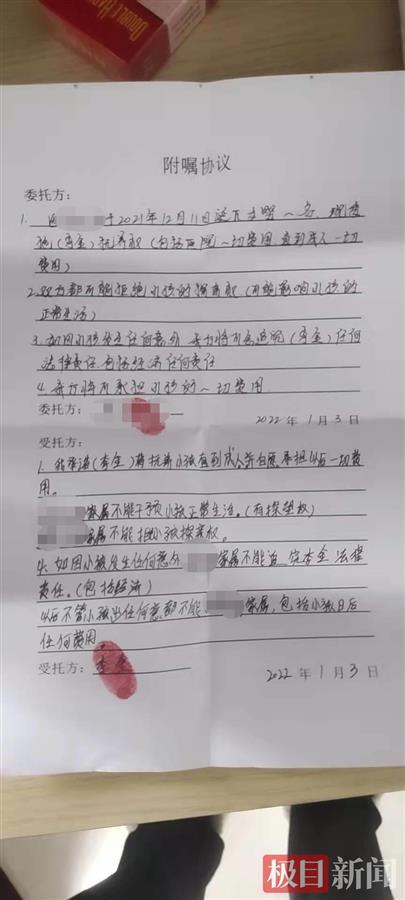 DOUBLE HA
附嘱协议
委托方:
1. 因 于2021年12月11日诞下 一名, 现委
托(李金)抚养权(包括医院一切费用 直到成人一切
费用)
2.双方都不能拒绝小孩的探亲权(不能影响小孩的
正常生活)
3.如因小孩发生任何意外 将不会追究(李金)任何
法律责任 包括经济任何责任
4. 将不承担小孩的一切费用
委托方:
2022年1月3日
受托方:
1.我承诺(李金)将抚养小孩直到成人并自愿承担以后一切费
用。
家属不能干预小孩正常生活。(有探望权)
家属不能拒小孩探亲权。
4.如因小孩发生任何意外 家属不能追究李金法律
责任。(包括经济)
以后不管小孩出任何意 都不能 家属,包括小孩日后
任何费用。
受托方: 李金
2022年1月3日
极目新闻